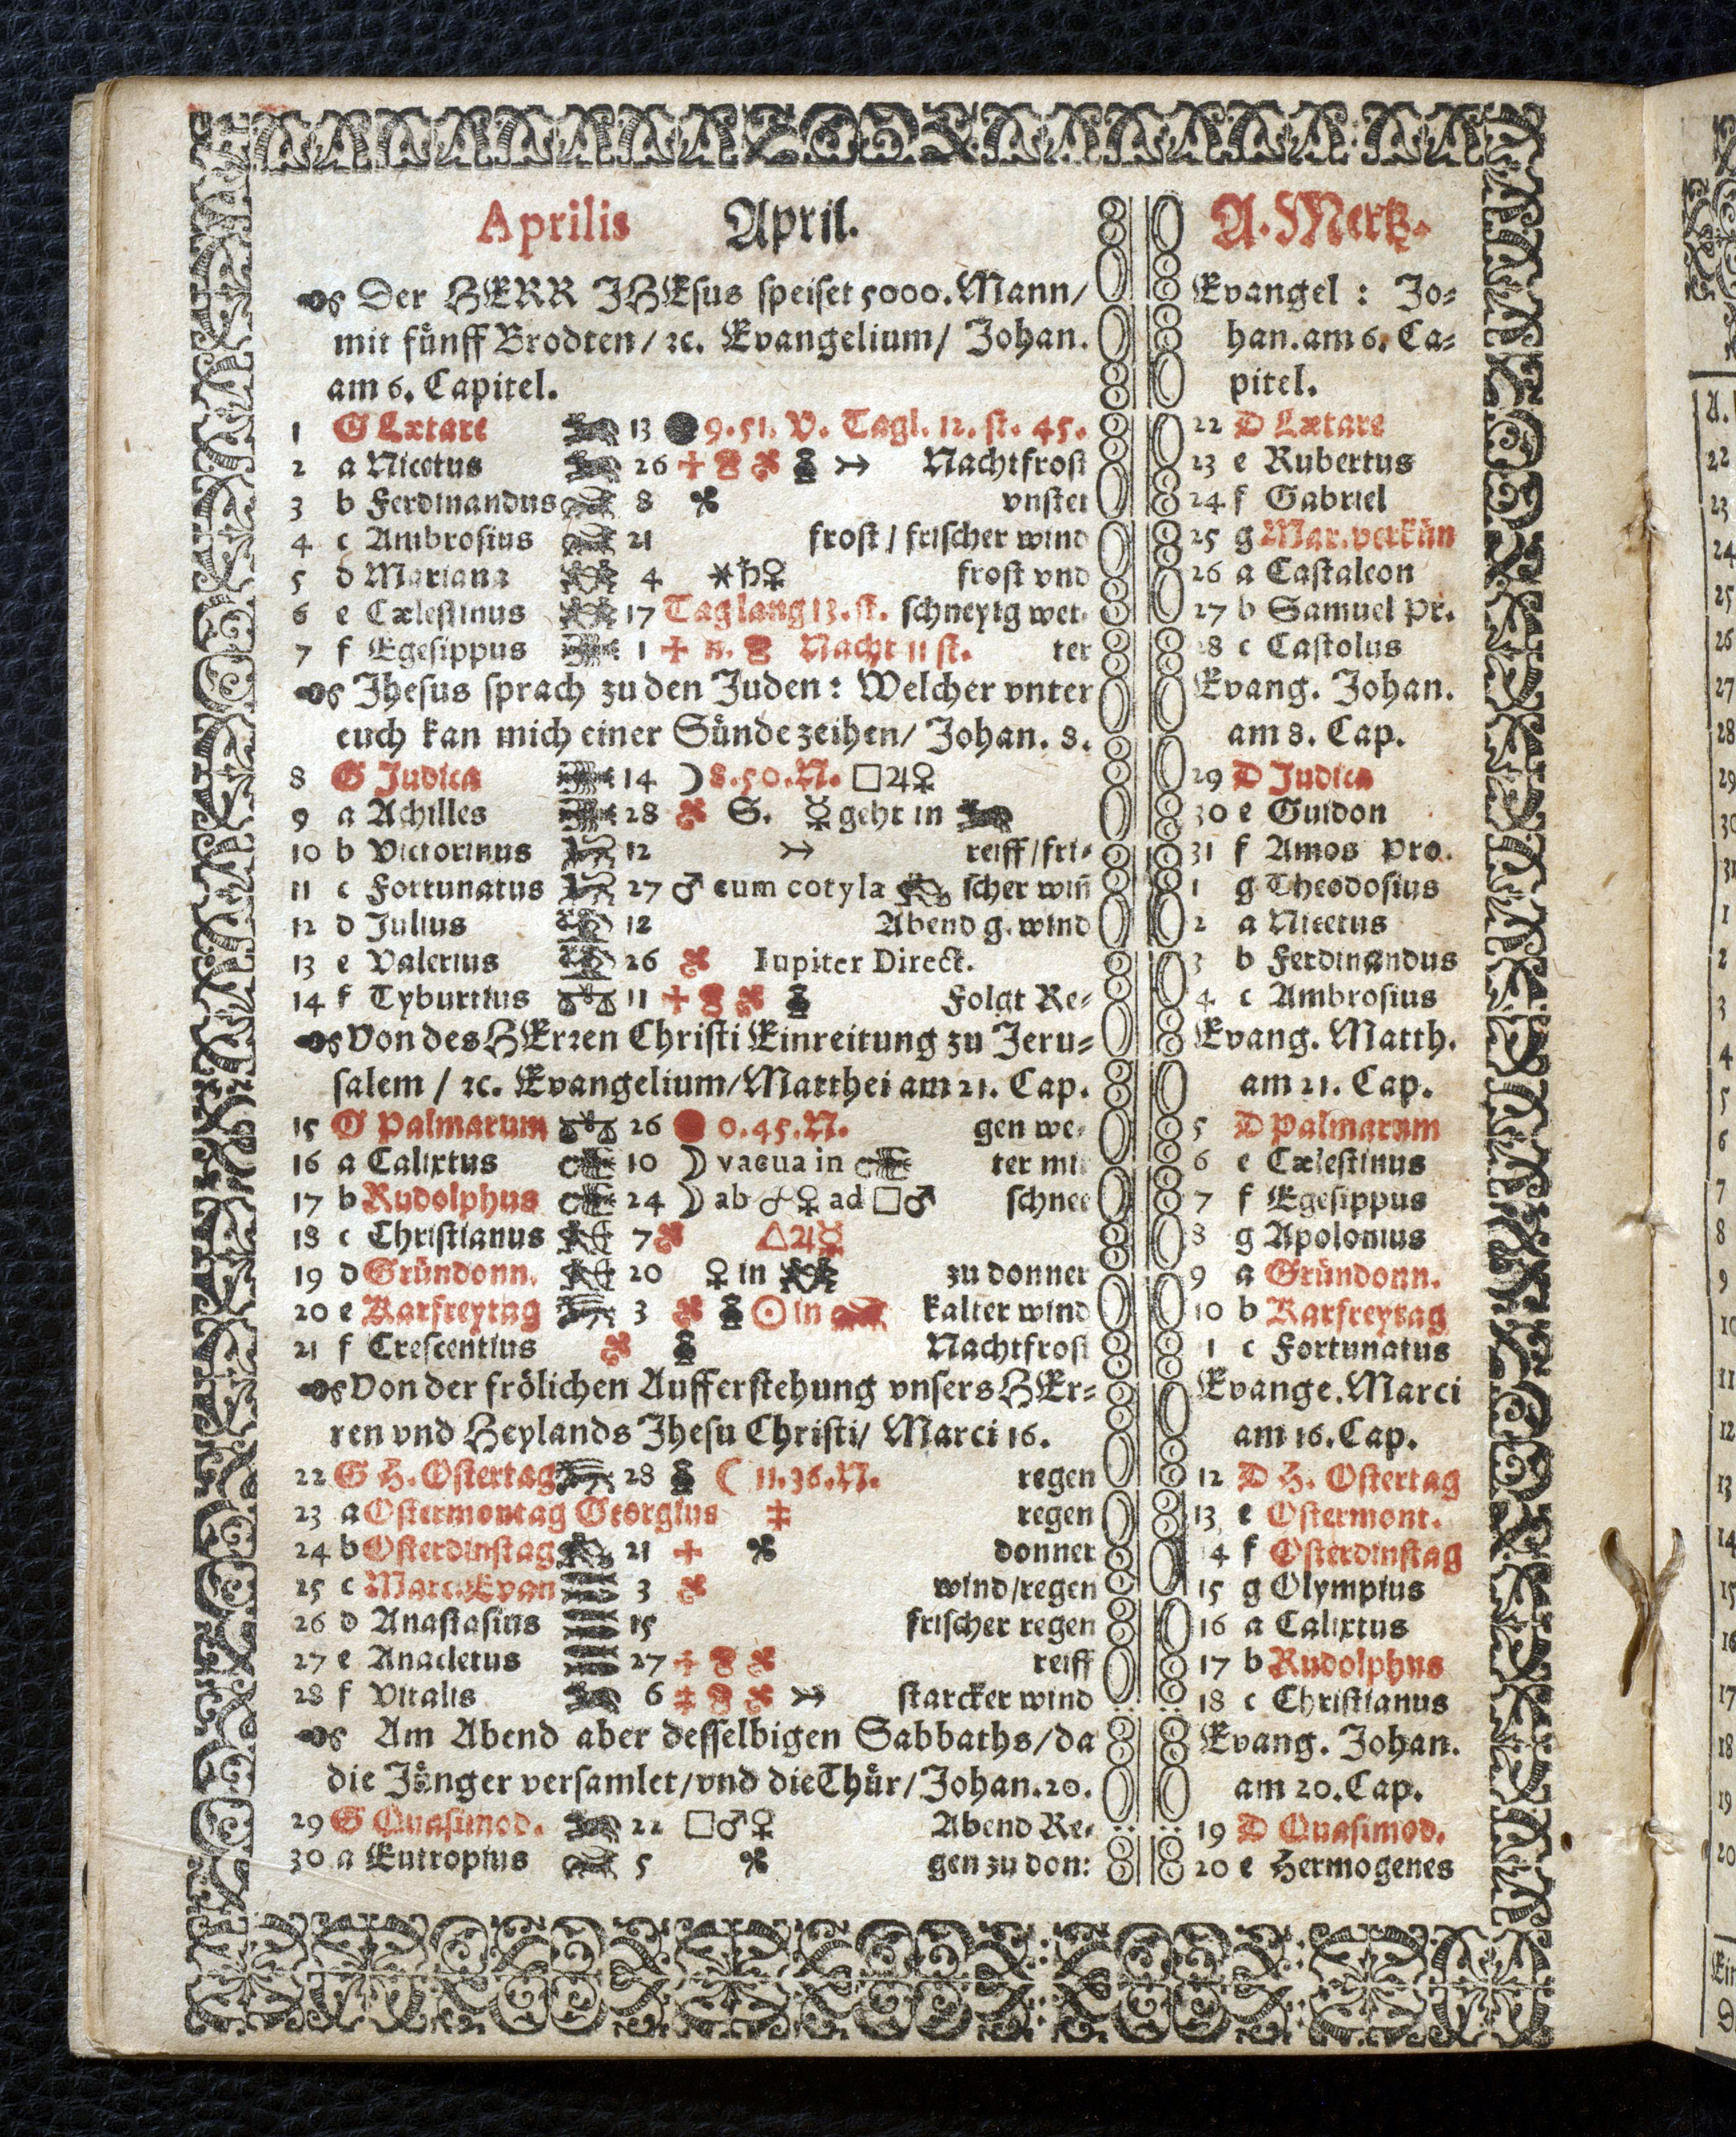 Aprilis April.
Der HERR JHEsus speiset 5000. Mann/
mit fünff Brodten/ ꝛc. Evangelium/ Johan.
am 6. Capitel.
1 G Lætare 13 9.51. V. Tagl. 12. st. 45.
2 a Nicetus 26 Nachtfrost
3 b Ferdinandus 8 vnstet
4 c Ambrosius 21 frost / frischer wind
5 d Mariana 4 ⚹♄♀ frost vnd
6 e Cælestinus 17 Tag lang 13. st. schneyig wet-
7 f Egesippus 1 n. Nacht 11 st. ter
Jhesus sprach zu den Juden: Welcher vnter
euch kan mich einer Sünde zeihen/ Johan. 8.
8 G Judica 14 ☽ 8.50.N. □♃♀
9 a Achilles 28 S. ☿ geht in
10 b Victorinus 12 reiff/fri-
11 c Fortunatus 27 ♂ cum cotyla scher win̄
12 d Julius 12 Abend g. wind
13 e Valerius 26 Iupiter Direct.
14 f Tyburtius 11 Folgt Re-
Von des HErꝛen Christi Einreitung zu Jeru-
salem / ꝛc. Evangelium/Matthei am 21. Cap.
15 G Palmarum 26 0.45.N. gen we-
16 a Calixtus 10 ☽ vacua in ter mit
17 b Rudolphus 24 ☽ ab ☍♀ ad □♂ schnee
18 c Christianus 7 △♃☿
19 d Gründonn. 20 ♀ in zu donner
20 e Karfreytag 3 ☉ in kalter wind
21 f Crescentius Nachtfrost
Von der frölichen Aufferstehung vnsers HEr-
ren vnd Heylands Jhesu Christi/ Marci 16.
22 G H. Ostertag 28 ☾ 11.36.N. regen
23 a Ostermontag Georgius regen
24 b Osterdinstag 21 donner
25 c Marc. Evan 3 wind/regen
26 d Anastasius 15 frischer regen
27 e Anacletus 27 reiff
28 f Vitalis 6 starcker wind
Am Abend aber desselbigen Sabbaths/da
die Jünger versamlet/vnd die Thür/Johan.20.
29 G Quasimod. 22 □♂♀ Abend Re-
30 a Eutropius 5 gen zu don:
A. Mertz.
Evangel : Jo-
han. am 6. Ca-
pitel.
22 D Lætare
23 e Rubertus
24 f Gabriel
25 g Mar. verkün
26 a Castaleon
27 b Samuel Pr.
28 c Castolus
Evang. Johan.
am 8. Cap.
29 D Judica
30 e Guidon
31 f Amos Pro.
1 g Theodosius
2 a Nicetus
3 b Ferdinandus
4 c Ambrosius
Evang. Matth.
am 21. Cap.
5 D Palmarum
6 e Cælestinus
7 f Egesippus
8 g Apolonius
9 a Gründonn.
10 b Karfreytag
1 c Fortunatus
Evange. Marci
am 16. Cap.
12 D H. Ostertag
13 e Ostermont.
14 f Osterdinstag
15 g Olympius
16 a Calixtus
17 b Rudolphus
18 c Christianus
Evang. Johan.
am 20. Cap.
19 D Quasimod.
20 e Hermogenes